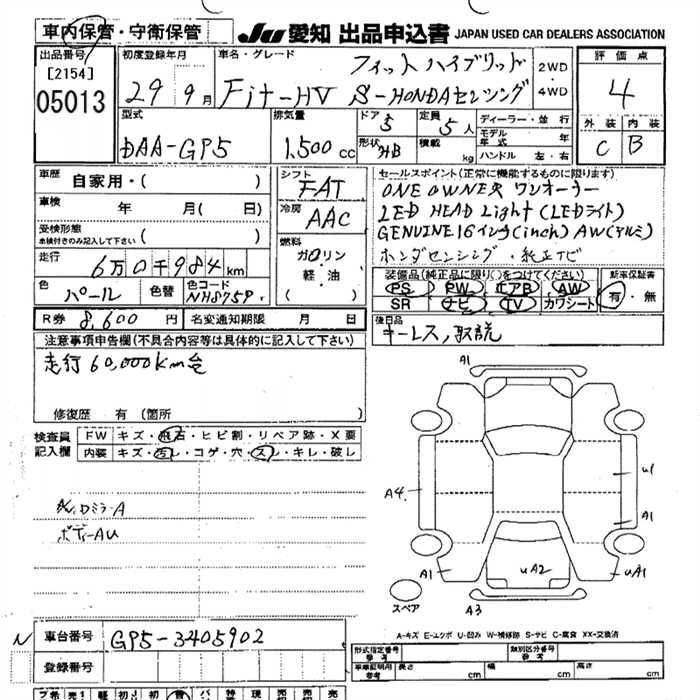 車内保管・守衛保管
JU 愛知 出品申込書 JAPAN USED CAR DEALERS ASSOCIATION
出品番号
[2154]
05013
初度登録年月
29 9月
車名・グレード
フィットハイブリッド
Fit-HV S-HONDAセンシング
2WD
・
4WD
評価点
4
外装 内装
C B
型式
DAA-GP5
排気量
1,500 cc
ドア
5
形状
HB
定員
5人
積載
kg
ディーラー・並行
モデル年式 年
ハンドル 左・右
車歴 自家用・( )
車検 年 月( 日)
受検形態
車検付きのみ記入して下さい ( )
走行
6万0千984km
色
パール
色替
色コード
NH875P
シフト
FAT
冷房
AAC
燃料
ガソリン
軽・油
( )
セールスポイント(正常に機能するものに限ります)
ONE OWNER ワンオーナー
LED HEAD Light(LEDライト)
GENUINE16インチ(inch) AW(アルミ)
ホンダセンシング・純正ナビ
装備品(純正品に限り○をつけてください)
PS PW エアB AW
SR ナビ TV カワシート
新車保証書
有・無
R券 8,600円
名変通知期限 月 日
後日品
キーレス,取説
注意事項申告欄(不具合内容等は具体的に記入して下さい)
走行60,000Km台
修復歴 有(箇所 )
検査員
記入欄
FW キズ・飛石・ヒビ割・リペア跡・X要
内装 キズ・汚レ・コゲ・穴・スレ・キレ・破し
ドミラーA
ボディーAU
A1
A4
U1
A1
A1
UA2
UA1
A3
スペア
A-キズ E-エクボ U-凹み W-補修跡 S-サビ C-腐食 XX-交換済
N
車台番号 GP5-3405902
登録番号
形式指定番号
参考
類別区分番号
参考
車検証明用
参考
長さ cm 幅 cm 高さ cm